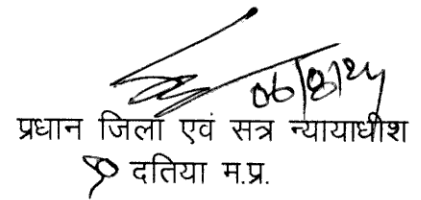 06/8/24
प्रधान जिला एवं सत्र न्यायाधीश
दतिया म.प्र.